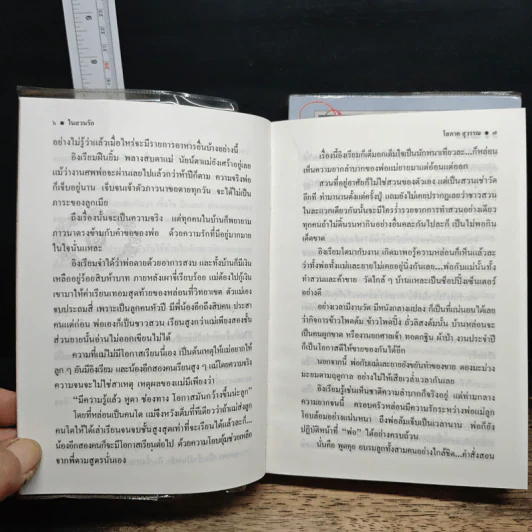 ๖ ● ในสวนรัก
อย่างไม่รู้ว่าแล้วเมื่อไหร่จะมีรายการอาหารอื่นบ้างอย่างนี้
อิงเรียมฝืนยิ้ม พลางสบตาแม่ นัยน์ตาแม่ยังเศร้าอยู่เลย
แม้ว่างานศพพ่อจะผ่านเลยไปแล้วกว่าห้าปีก็ตาม ความจริงพ่อ
ก็เจ็บอยู่นาน เจ็บจนเจ้าตัวภาวนาขอตายทุกวัน จะได้ไม่เป็น
ภาระของลูกเมีย
ถึงเรื่องนั้นจะเป็นความจริง แต่ทุกคนในบ้านก็พยายาม
ภาวนาตรงข้ามกับคำขอของพ่อ ด้วยความรักที่มีอยู่มากมาย
ในใจนั่นแหละ
อิงเรียมจำได้ว่าพ่อตายด้วยอาการสงบ และทั้งบ้านก็มีเงิน
เหลืออยู่ร้อยสิบห้าบาท ภายหลังเผาจี่เรียบร้อย แม่ต้องไปกู้เงิน
เขามาให้ค่าเรียนเทอมสุดท้ายของหล่อนที่วิทยาเขต ตัวแม่เอง
จบประถมสี่ เพราะเป็นลูกคนหัวปี มีพี่น้องอีกถึงสิบคน ประสา
คนแต่ก่อน พ่อเองก็เป็นชาวสวน เรียนสูงกว่าแม่เพียงสองชั้น
ส่วนยายนั้นอ่านไม่ออกเขียนไม่ได้
ความที่แม่ไม่มีโอกาสเรียนนี่เอง เป็นต้นเหตุให้แม่อยากให้
ลูก ๆ อันมีอิงเรียม และน้องอีกสองคนเรียนสูง ๆ แม่โดยความจริง
ความจนจะไม่ใช่สาเหตุ เหตุผลของแม่มีเพียงว่า
“มีความรู้แล้ว พูดา ช่องทาง โอกาสมันกว้างขึ้นน่ะลูก”
โดยที่หล่อนเป็นคนโต แม่จึงหวังเต็มที่ทีเดียวว่าถ้าแม่ส่งลูก
คนโตให้ได้เล่าเรียนจนจบชั้นสูงสุดเท่าที่จะเรียนได้แล้วละก็...
น้องอีกสองคนก็จะมีโอกาสเรียนต่อไป ด้วยความโอบอุ้มช่วยเหลือ
จากพี่ตามสูตรนั่นเอง
โสภาค สุวรรณ ● ๗
เรื่องนี้อิงเรียมก็เต็มอกเต็มใจเป็นนักหนาเทียวละ...ก็หล่อน
เห็นความยากลำบากของพ่อแม่ยายมาแต่อ้อนแต่ออก
สวนที่อยู่อาศัยก็ไม่ใช่สวนของตัวเอง แต่เป็นสวนเช่าวัด
อีกที ทำมานานตั้งแต่ครั้งปู่ แถมยังไม่เคยปรากฏเลยว่าชาวสวน
ในละแวกเดียวกันนั้นจะมีใครร่ำรวยจากการทำสวนอย่างเดียว
ทุกคนถ้าไม่ดิ้นรนหากินอย่างอื่นคละกันไปละก็ เป็นไม่พอกิน
เด็ดขาด
อิงเรียมโตมากับงาน เกิดมาพอรู้ความหล่อนก็เห็นแล้วละ
ว่าทั้งพ่อทั้งแม่และยายไม่เคยอยู่นิ่งกันเลย...พ่อกับแม่นั้นทั้ง
ทำสวนและค้าขาย วัดใกล้ ๆ บ้านแหละเป็นช็อปปิ้งเซ็นเตอร์
อย่างดี
อย่างเวลามีงานวัด มีหนังกลางแปลง ก็เป็นที่แน่นอนได้เลย
ว่ากิจการข้าวโพดต้ม ข้าวโพดปิ้ง ถั่วลิสงต้มนั้น บ้านหล่อนจะ
เป็นคนผูกขาด หรืองานออกศาลเจ้า ทอดกฐิน ผ้าป่า งานประจำปี
ก็เป็นโอกาสดีให้ขายของกันได้อีก
นอกจากนี้ พ่อกับแม่และยายยังขยันทำของขาย ดองมะม่วง
มะยมตามฤดูกาล อย่างไม่ให้เสียเวล่ำเวลากันเลย
อิงเรียมรู้เช่นเห็นชาติความลำบากก็จริงอยู่ แต่ท่ามกลาง
ความยากจนนี้ ครอบครัวหล่อนมีความรักระหว่างพ่อแม่ลูก
โอบล้อมอย่างแน่นหนา ถึงพ่อล้มเจ็บเป็นเวลานาน พ่อก็ยัง
ปฏิบัติหน้าที่ “พ่อ” ได้อย่างครบถ้วน
นั่นคือ พูดคุย อบรมลูกทั้งสามคนอย่างใกล้ชิด...คำสั่งสอน